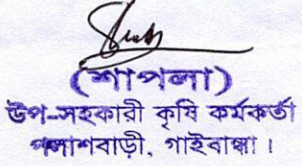 (শাপলা)
উপ-সহকারী কৃষি কর্মকর্তা
পলাশবাড়ী, গাইবান্ধা।